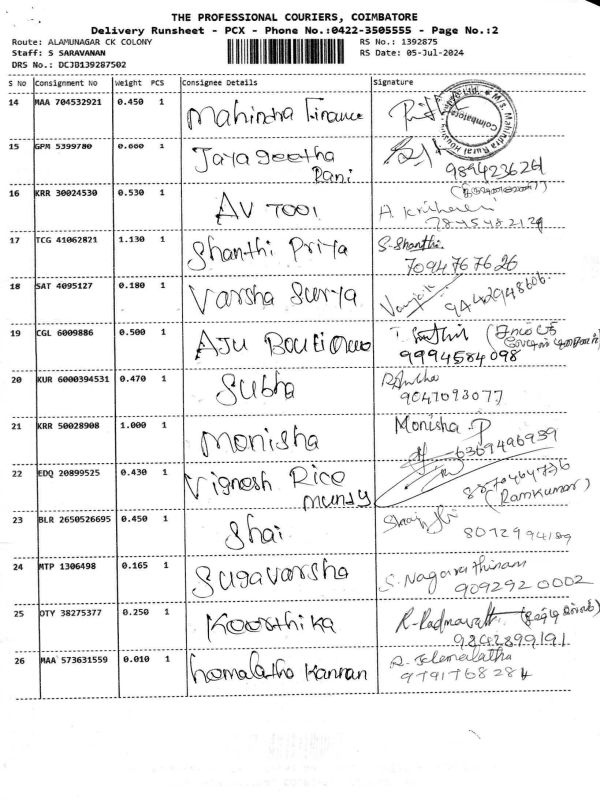 THE PROFESSIONAL COURIERS, COIMBATORE
Delivery Runsheet - PCX - Phone No.:0422-3505555 - Page No.:2
Route: ALAMUNAGAR CK COLONY RS No.: 1392875
Staff: S SARAVANAN RS Date: 05-Jul-2024
DRS No.: DCJD139287502
S No Consignment No Weight PCS Consignee Details Signature
14 MAA 704532921 0.450 1 Mahindra Finance
M/S. Mahindra Rural Coimbatore
15 GPM 5399780 0.660 1 Jayageetha
Rani 989423626
16 KRR 30024530 0.530 1 AV TOOl
17 TCG 41062821 1.130 1 Shanthi Priya S. Shanthi
7094767626
18 SAT 4095127 0.180 1 Varsha Surya 9442948606
19 CGL 6009886 0.500 1 AJU Boutique
9994584098
20 KUR 6000394531 0.470 1 Subha
9047093077
21 KRR 50028908 1.000 1 Monisha Monisha P
6369496939
22 EDQ 20899525 0.430 1 Vignesh Rice
mundy (Ramkumar)
23 BLR 2650526695 0.450 1 Shai
24 MTP 1306498 0.165 1 Sugavarsha S. Nagarathinam
9092920002
25 OTY 38275377 0.250 1 Koorthika
9842899191
26 MAA 573631559 0.010 1 homalatha Kannan
9791768284